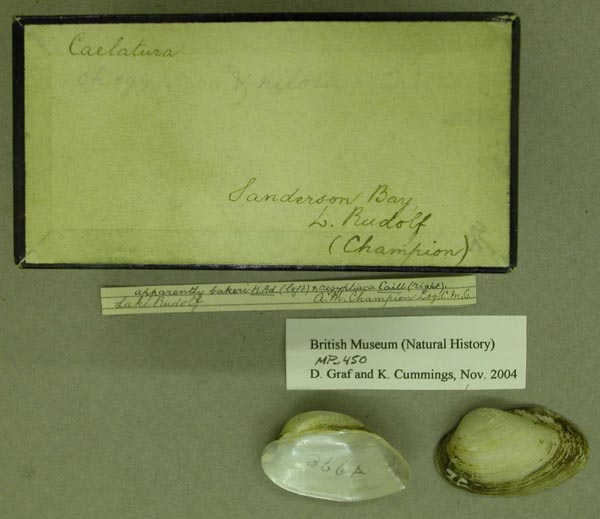 Caelatura
& nilotica Caill.
Sanderson Bay,
L. Rudolf
(Champion)
apparently bakeri H.Ad (left) & aegyptiaca Caill (right).
Lake Rudolf A. M. Champion
British Museum (Natural History)
MP-450
D. Graf and K. Cummings, Nov. 2004